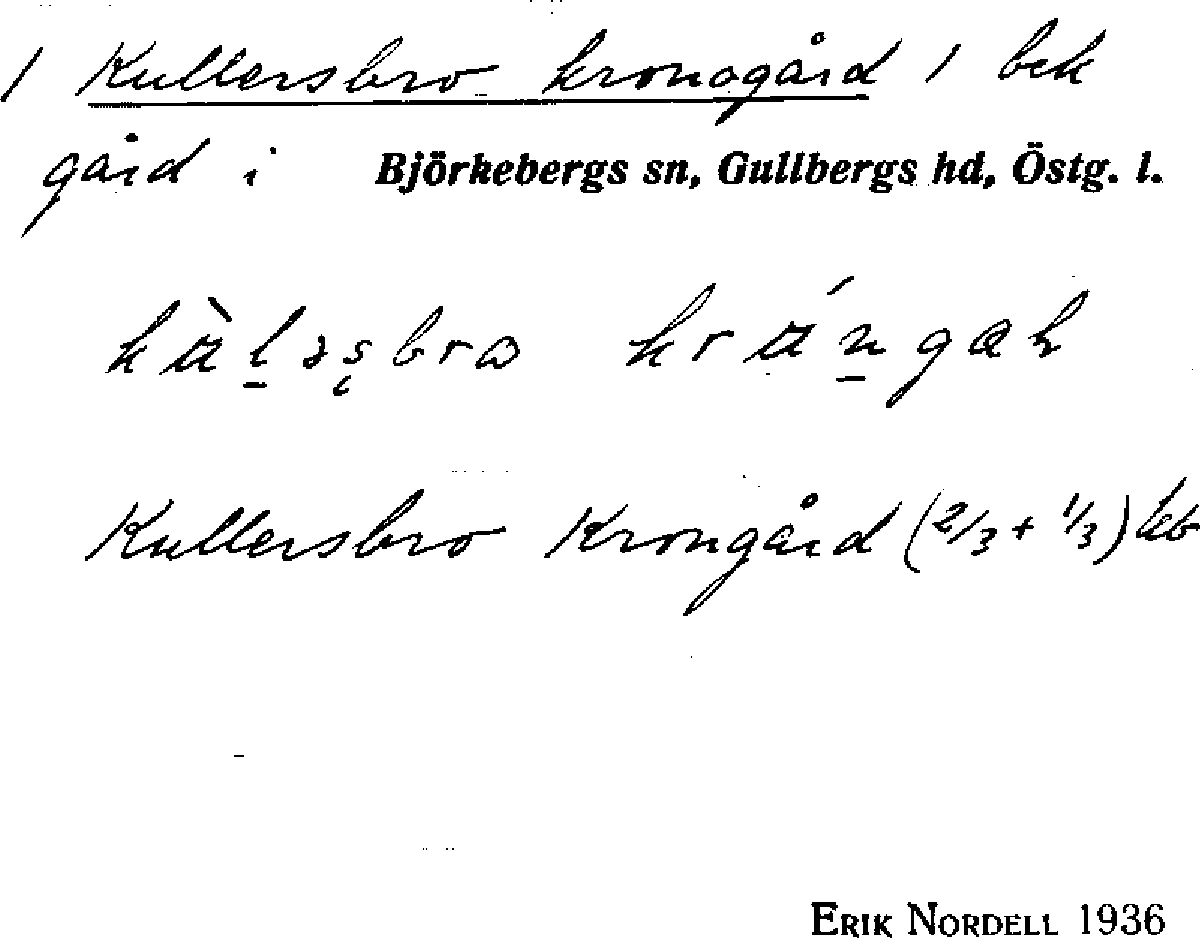 / Kullersbro kronogård / bek
gård i Björkebergs sn, Gullbergs hd, Östg. l.
Kullersbro Krongård (2/3 + 1/3) kb
ERIK NORDELL 1936